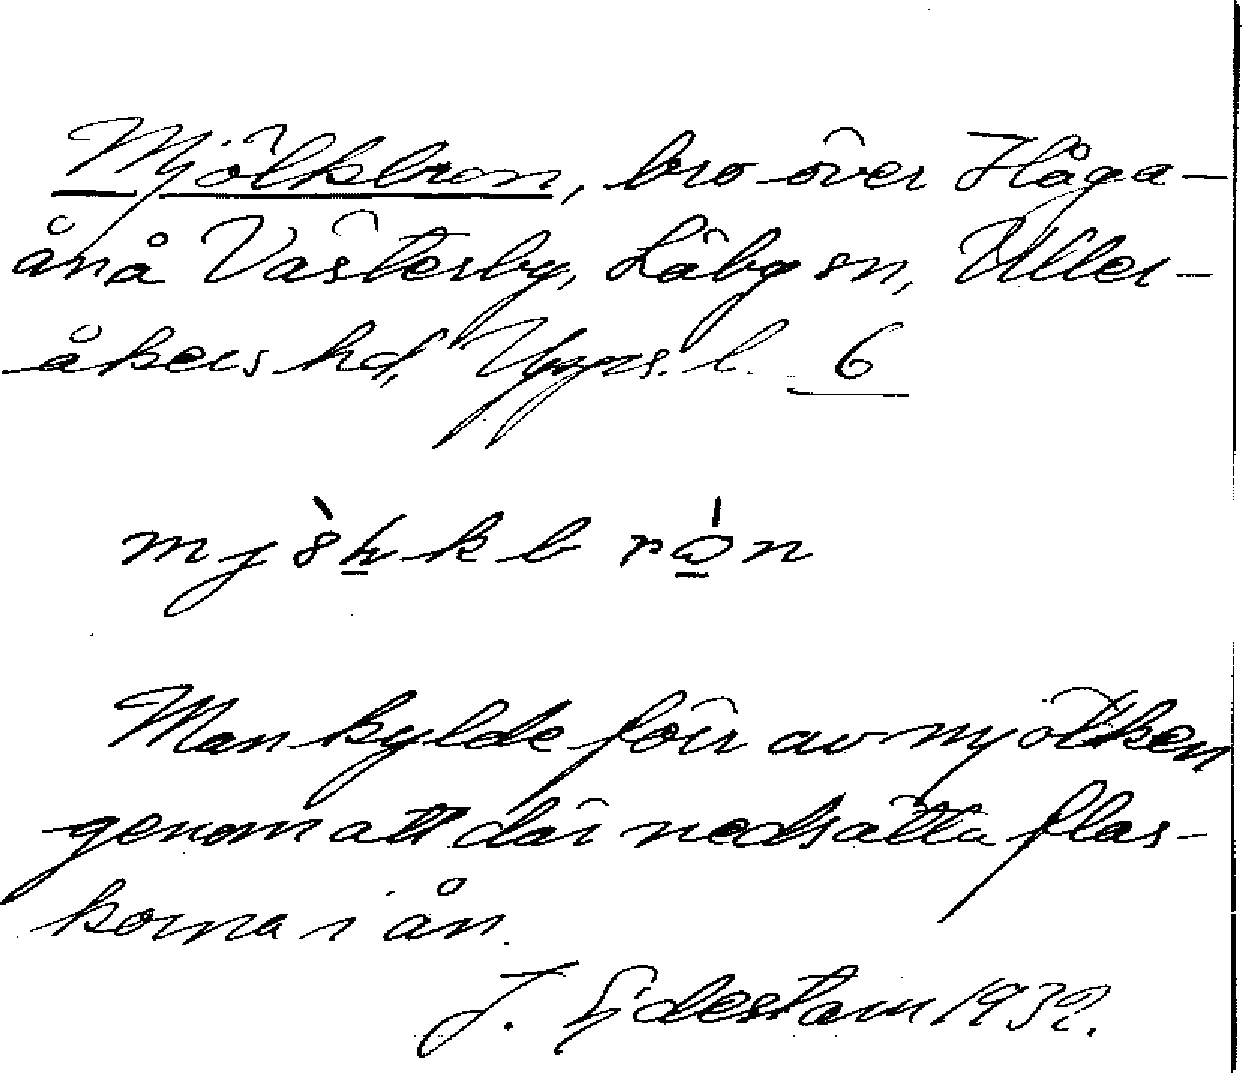 Mjölkbron, bro över Håga-
ån å Västerby, Läby sn, Uller-
åkers hd, Upps. l. 6
Man kylde förr av mjölken
genom att där nedsätta flas-
korna i ån.
J. Ejdestam 1932.